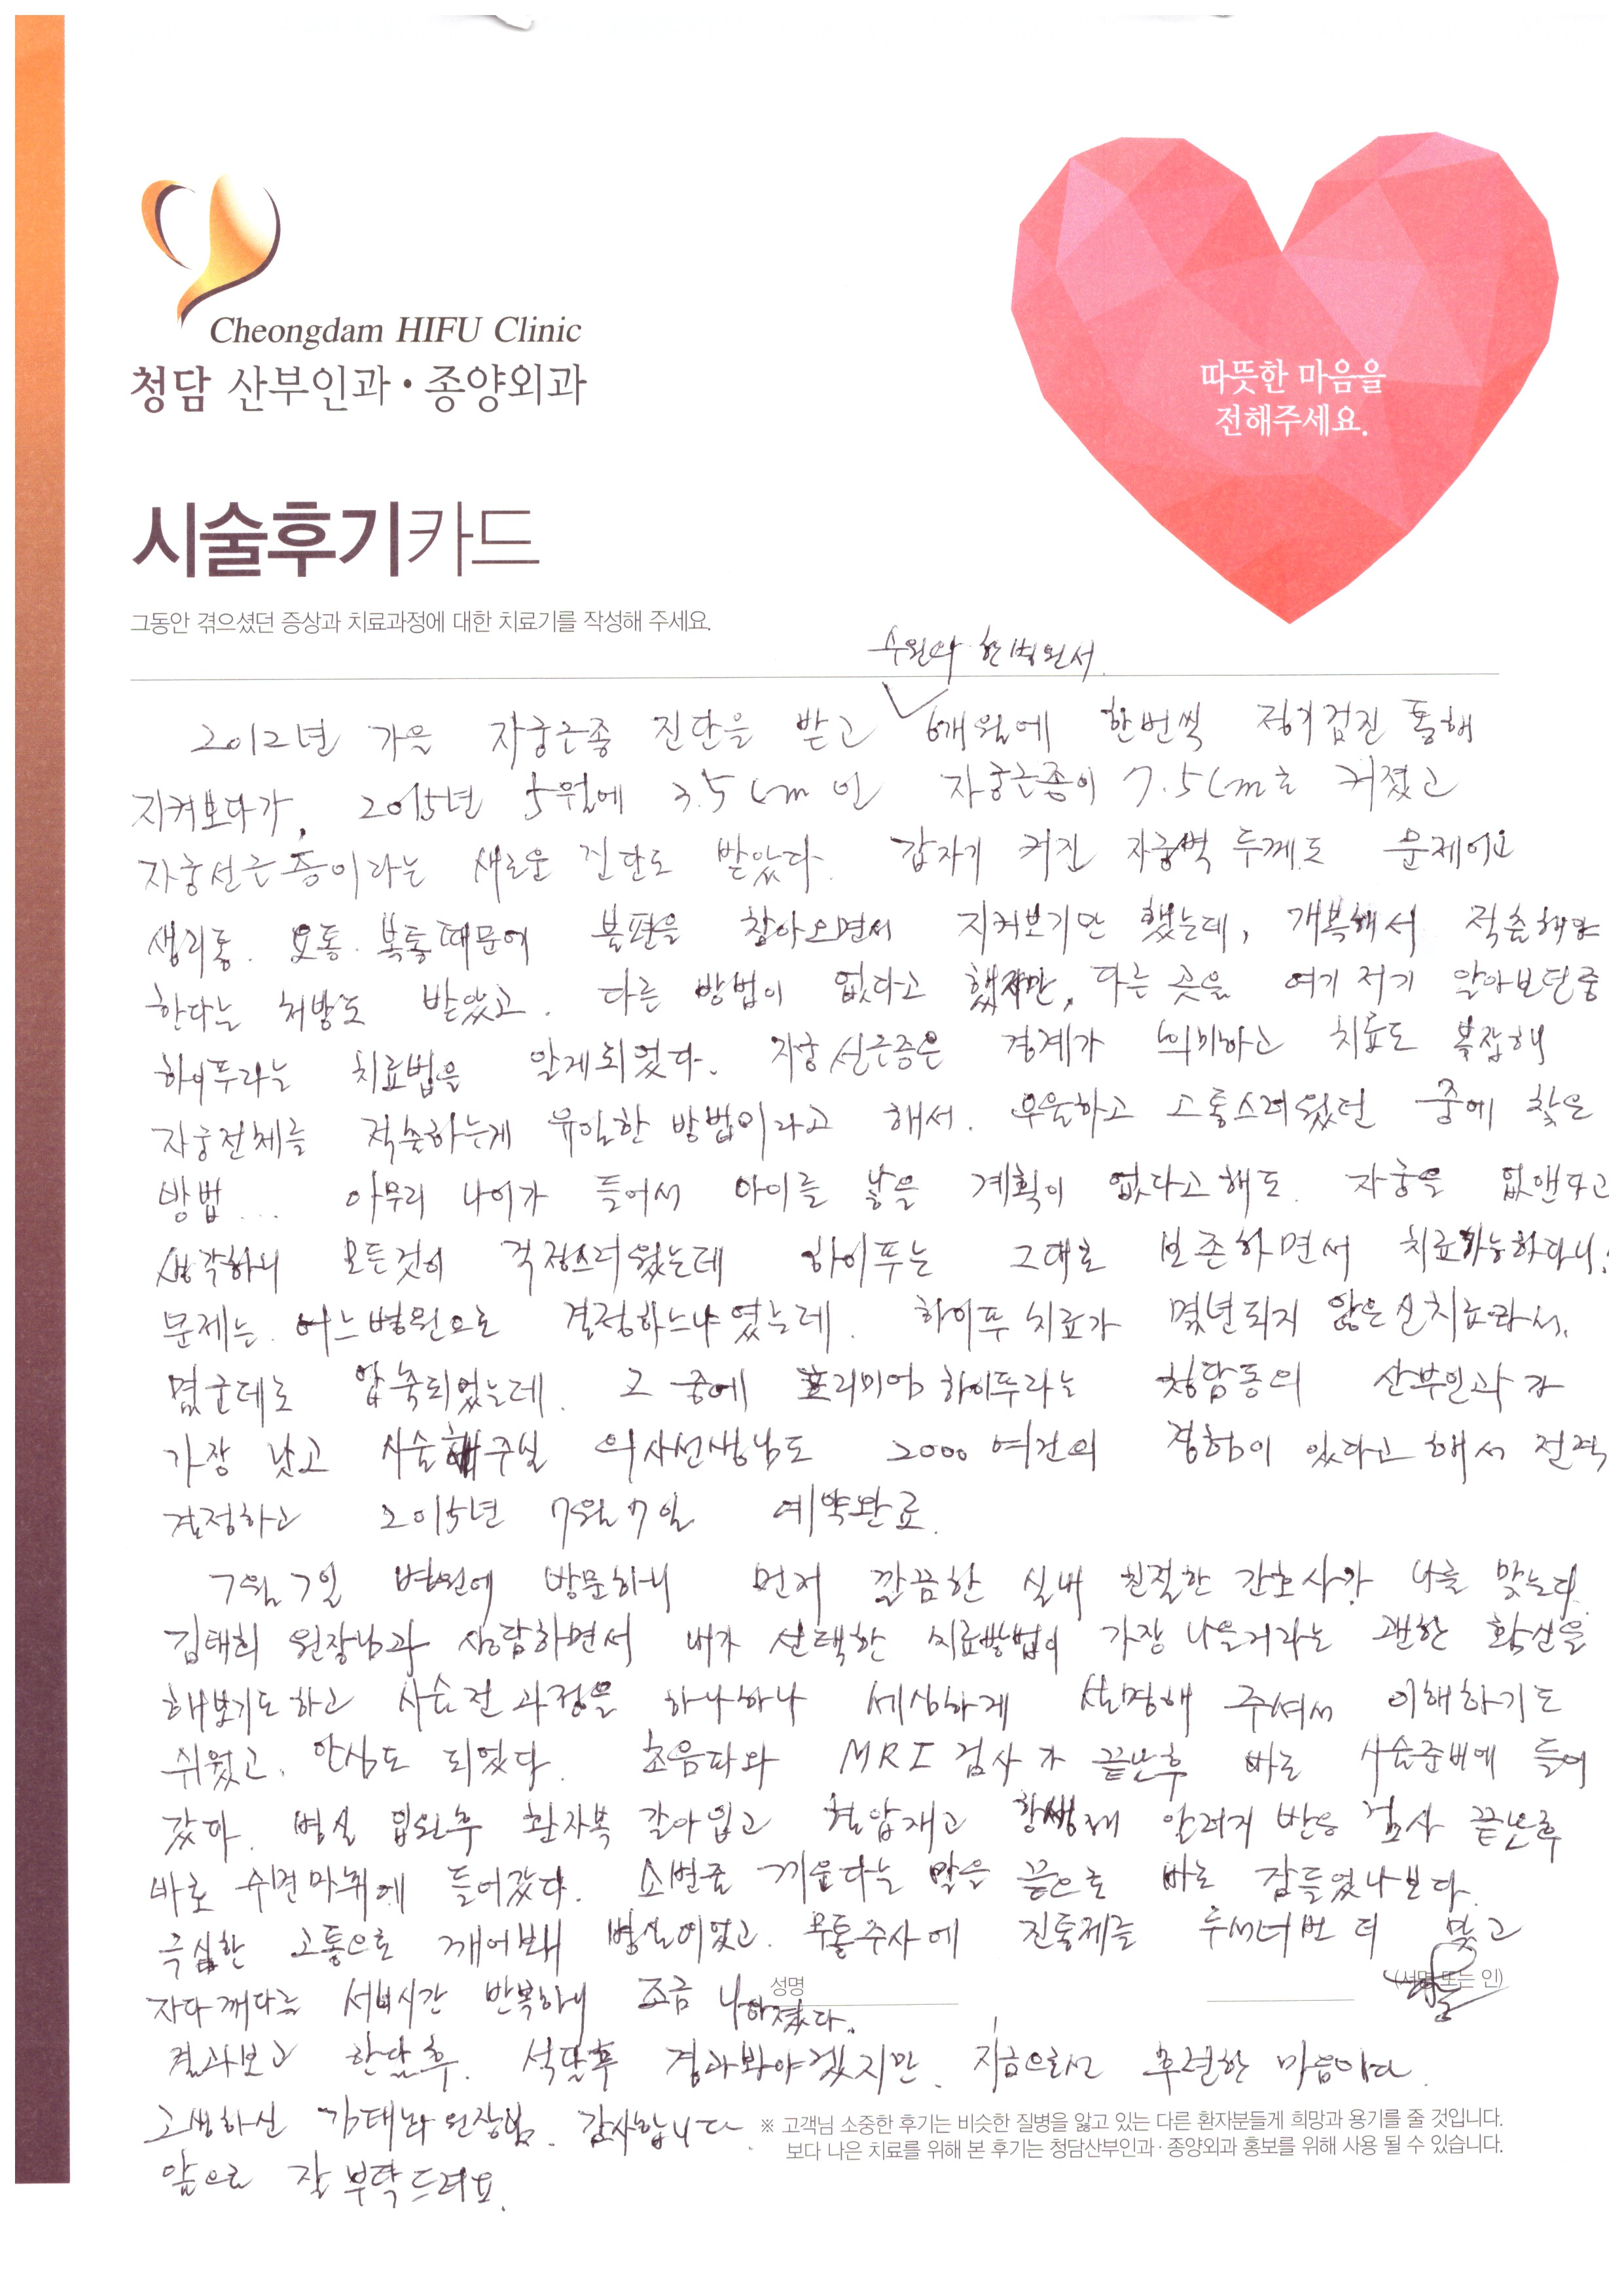 Cheongdam HIFU Clinic
청담 산부인과·종양외과
따뜻한 마음을
전해주세요.
시술후기카드
그동안 겪으셨던 증상과 치료과정에 대한 치료기를 작성해 주세요.
수원의 한병원서
2012년 가을 자궁근종 진단을 받고 6개월에 한번씩 정기검진 통해
지켜보다가, 2015년 5월에 3.5cm인 자궁근종이 7.5cm로 커졌고
자궁선근증이라는 새로운 진단도 받았다. 갑자기 커진 자궁벽 두께도 문제이고
생리통. 요통. 복통때문에 불편을 참아오면서 지켜보기만 했는데, 개복해서 적출해야
한다는 처방도 받았고. 다른 방법이 없다고 했지만, 다른 곳을 여기 저기 알아보던중
하이푸라는 치료법을 알게되었다. 자궁선근증은 경계가 희미하고 치료도 복잡해
자궁전체를 적출하는게 유일한 방법이라고 해서. 우울하고 고통스러웠던 중에 찾은
방법... 아무리 나이가 들어서 아이를 낳을 계획이 없다고해도. 자궁을 없앤다고
생각하니 모든것이 걱정스러웠는데 하이푸는 그대로 보존하면서 치료가능하다니!
문제는. 어느병원으로 결정하느냐였는데. 하이푸 치료가 몇년되지 않은 신치료라서.
몇군데로 압축되었는데. 그 중에 프리미엄 하이푸라는 청담동의 산부인과가
가장 낫고 시술해주실 의사선생님도 2000여건의 경험이 있다고 해서 전격
결정하고 2015년 7월 7일 예약완료.
7월 7일 병원에 방문하니 먼저 깔끔한 실내 친절한 간호사가 나를 맞는다.
김태희 원장님과 상담하면서 내가 선택한 치료방법이 가장 나을거라는 괜한 확신을
해보기도하고 시술전 과정을 하나하나 세심하게 설명해 주셔서 이해하기도
쉬웠고. 안심도 되었다. 초음파와 MRI 검사가 끝난후 바로 시술준비에 들어
갔다. 병실 입원후 환자복 갈아입고 혈압재고 항생제 알러지 반응 검사 끝난후
바로 수면마취에 들어갔다. 소변줄 끼운다는 말을 끝으로 바로 잠들었나보다.
극심한 고통으로 깨어보니 병실이었고. 무통주사에 진통제를 두세너번 더 맞고
성명 (서명 또는 인)
자다깨다를 서너시간 반복하니 조금 나아졌다.
결과보고 한달후. 석달후 경과봐야겠지만. 지금으로선 후련한 마음이다.
고생하신 김태희 원장님. 감사합니다.
앞으로 잘 부탁드려요.
※ 고객님 소중한 후기는 비슷한 질병을 앓고 있는 다른 환자분들게 희망과 용기를 줄 것입니다.
보다 나은 치료를 위해 본 후기는 청담산부인과·종양외과 홍보를 위해 사용 될 수 있습니다.